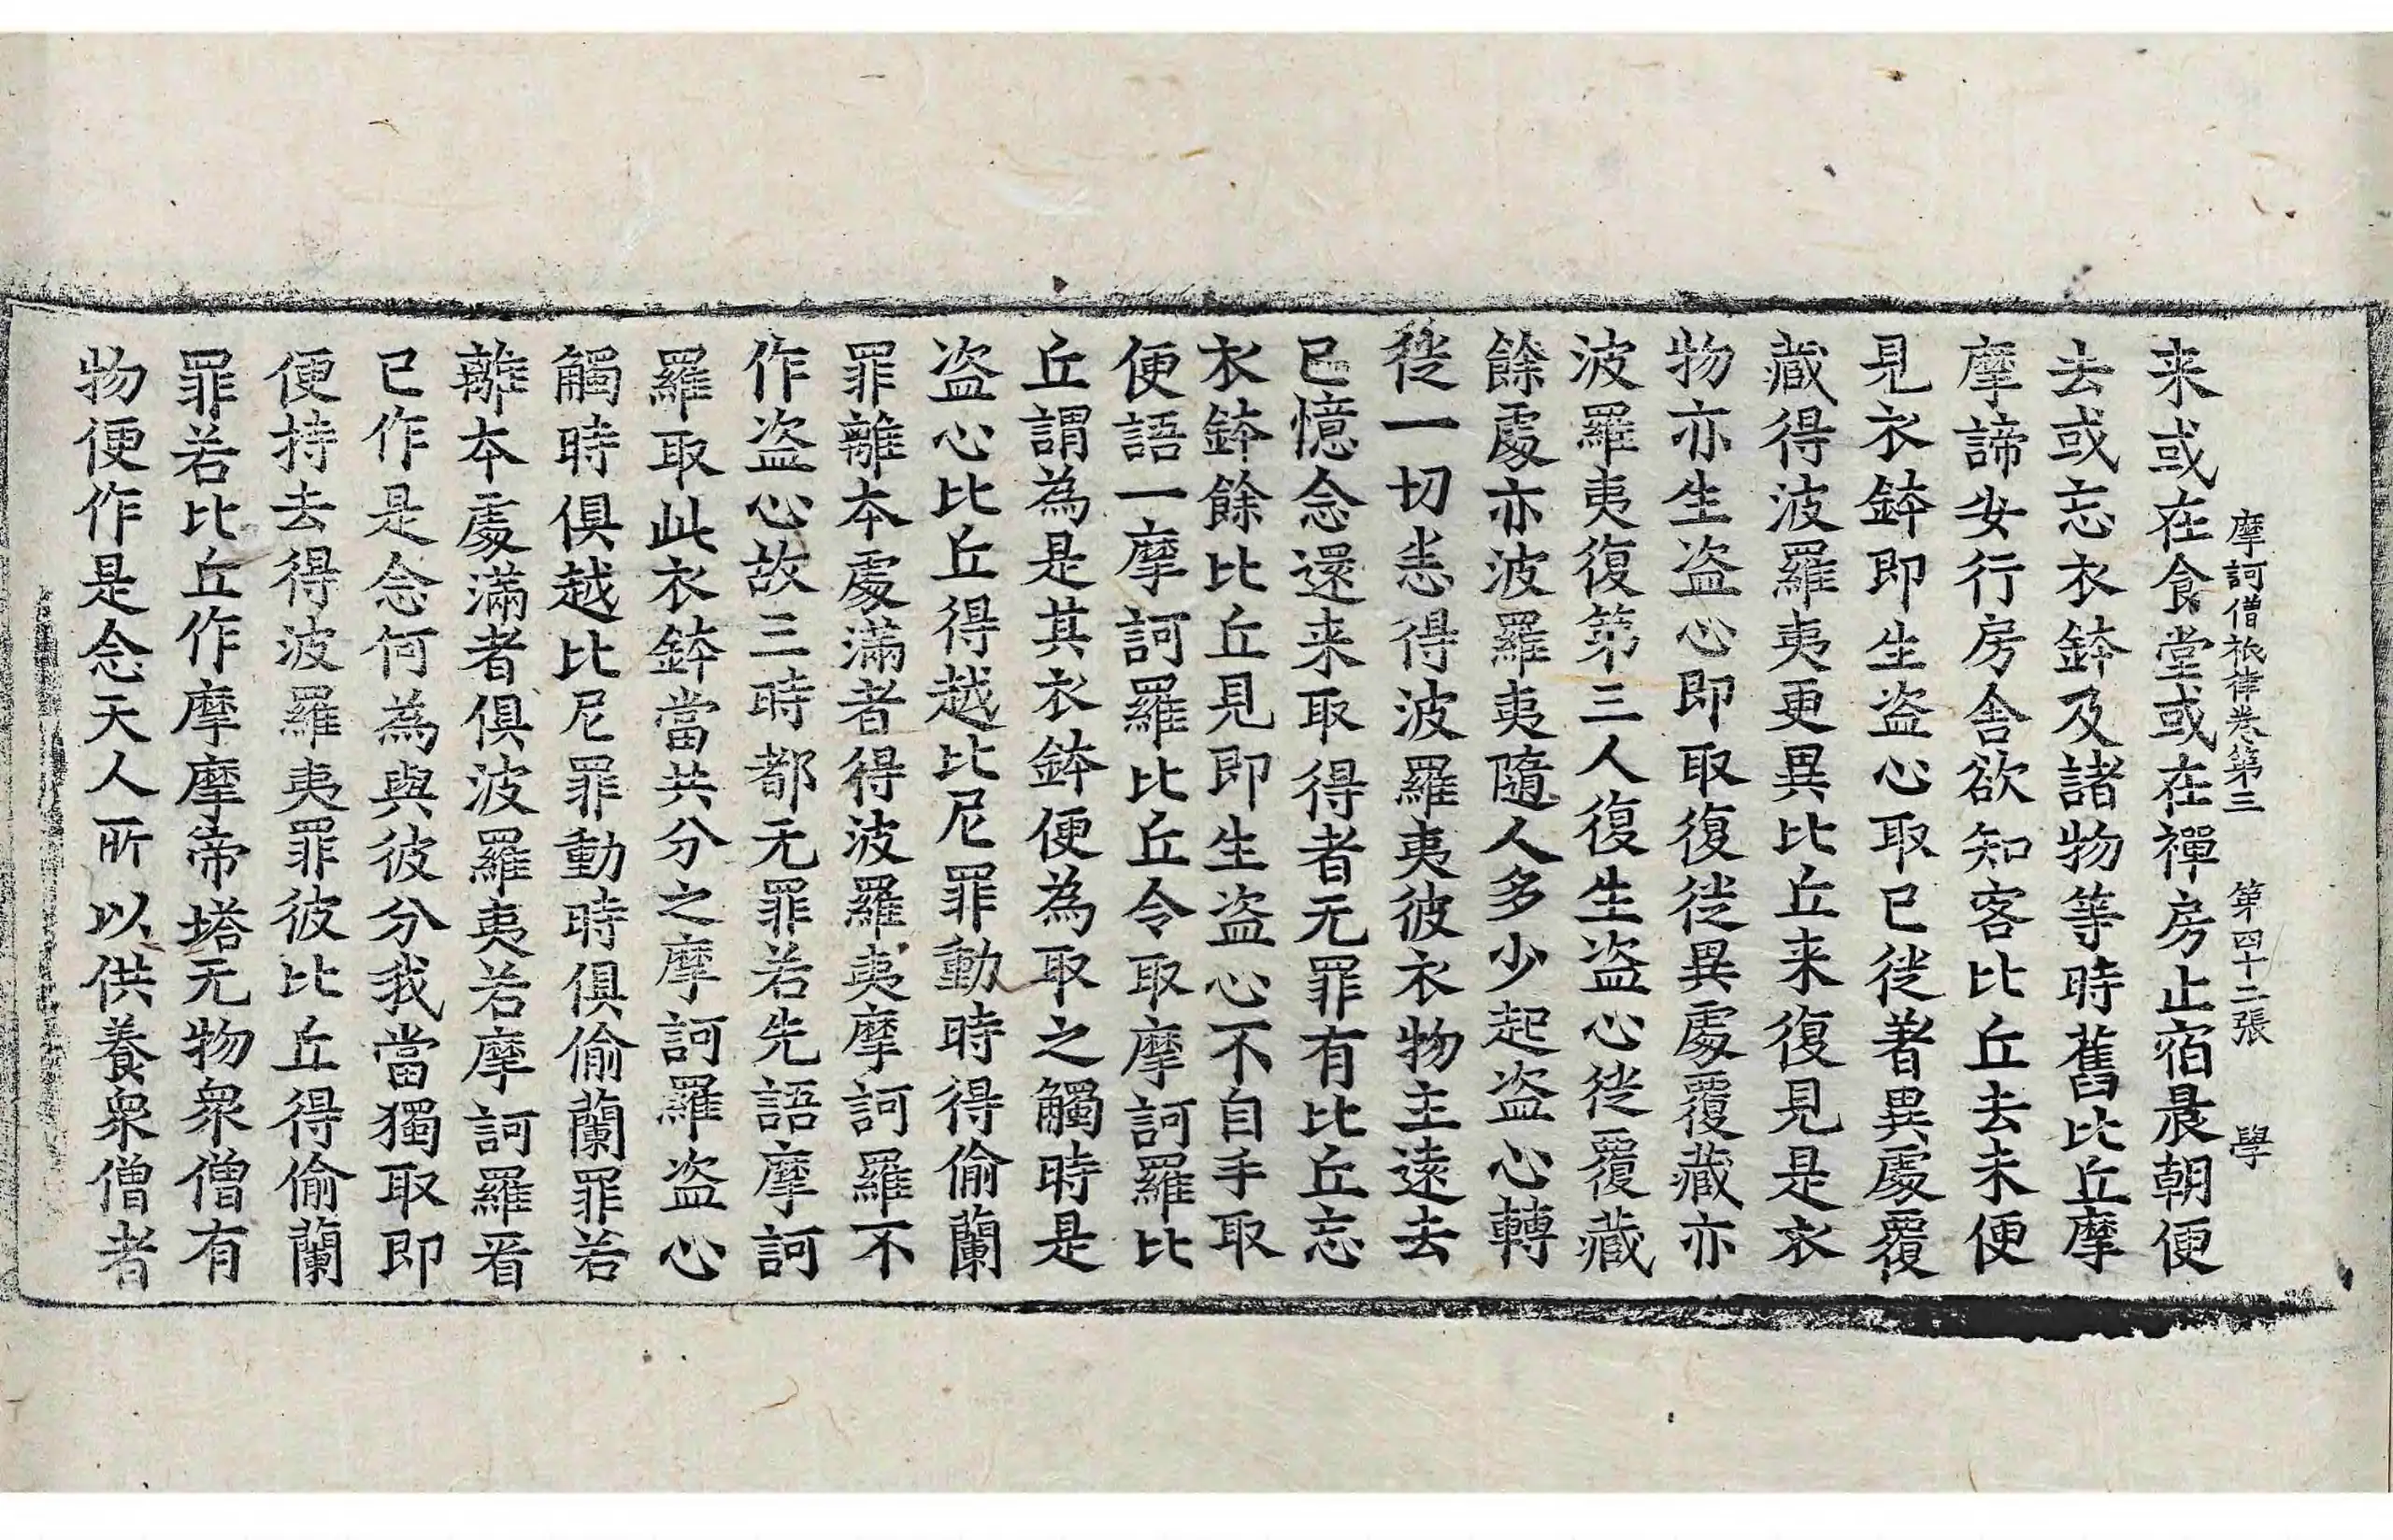 摩訶僧祇律卷第三 第四十二張 學
来或在食堂或在禪房止宿晨朝便
去或忘衣鉢及諸物等時舊比丘摩
摩諦安行房舍欲知客比丘去未便
見衣鉢即生盗心取已徙著異處覆
藏得波羅夷更異比丘来復見是衣
物亦生盗心即取復徙異處覆藏亦
波羅夷復第三人復生盗心徙覆藏
餘處亦波羅夷隨人多少起盗心轉
徙一切恙得波羅夷彼衣物主遠去
已憶念還来取得者无罪有比丘忘
衣鉢餘比丘見即生盗心不自手取
便語一摩訶羅比丘令取摩訶羅比
丘謂為是其衣鉢便為取之觸時是
盗心比丘得越比尼罪動時得偷蘭
罪離本處滿者得波羅夷摩訶羅不
作盗心故三時都无罪若先語摩訶
羅取此衣鉢當共分之摩訶羅盗心
觸時俱越比尼罪動時俱偷蘭罪若
離本處滿者俱波羅夷若摩訶羅看
已作是念何為與彼分我當獨取即
便持去得波羅夷罪彼比丘得偷蘭
罪若比丘作摩摩帝塔无物衆僧有
物便作是念天人所以供養衆僧者